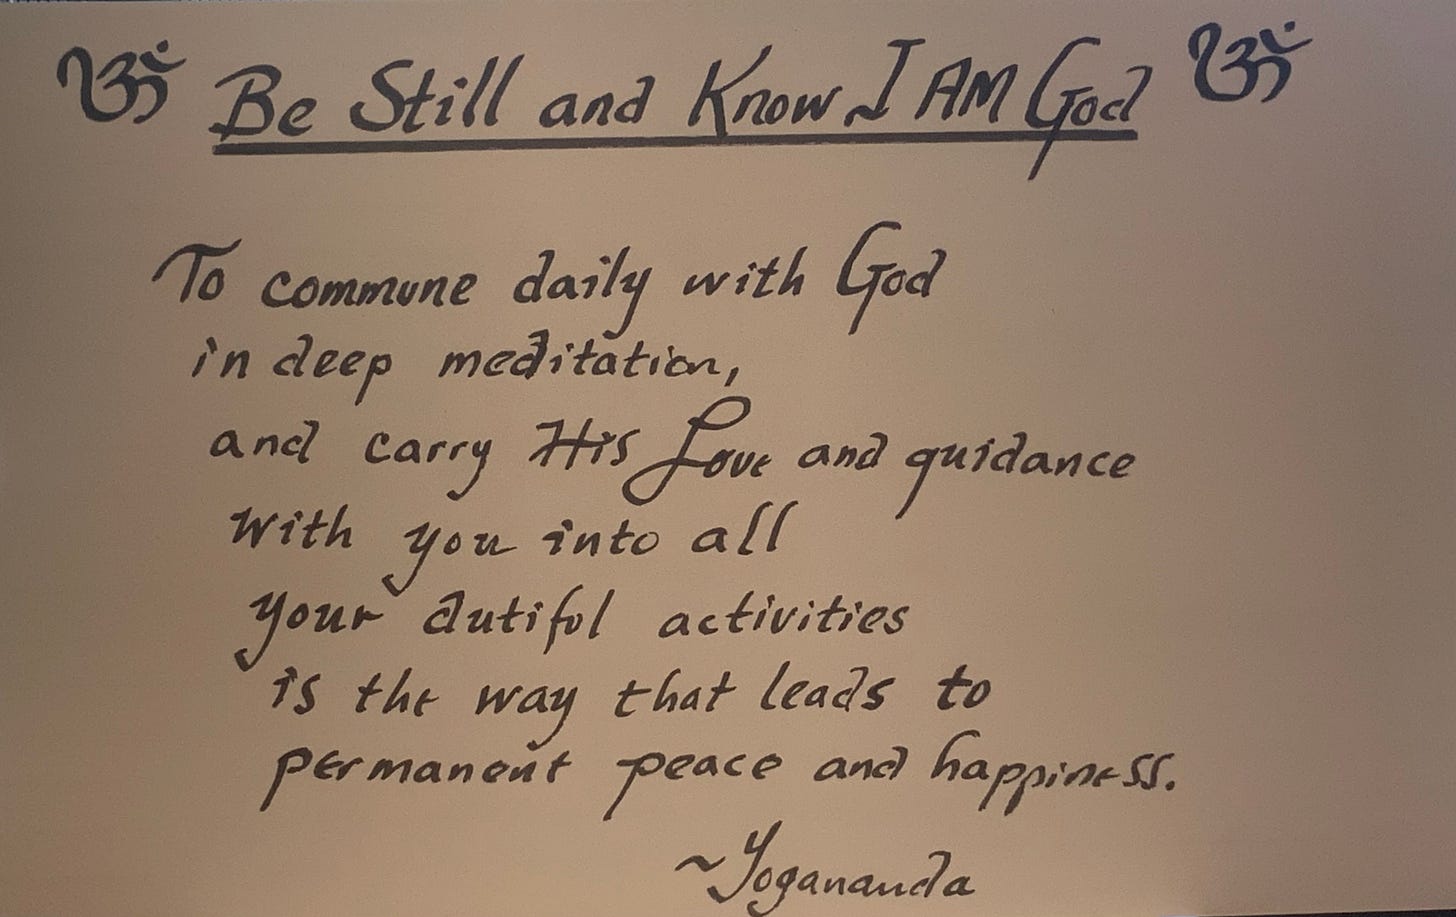 ॐ Be Still and Know I AM God ॐ
To commune daily with God
in deep meditation,
and carry His Love and guidance
with you into all
your dutiful activities
is the way that leads to
permanent peace and happiness.
~Yogananda